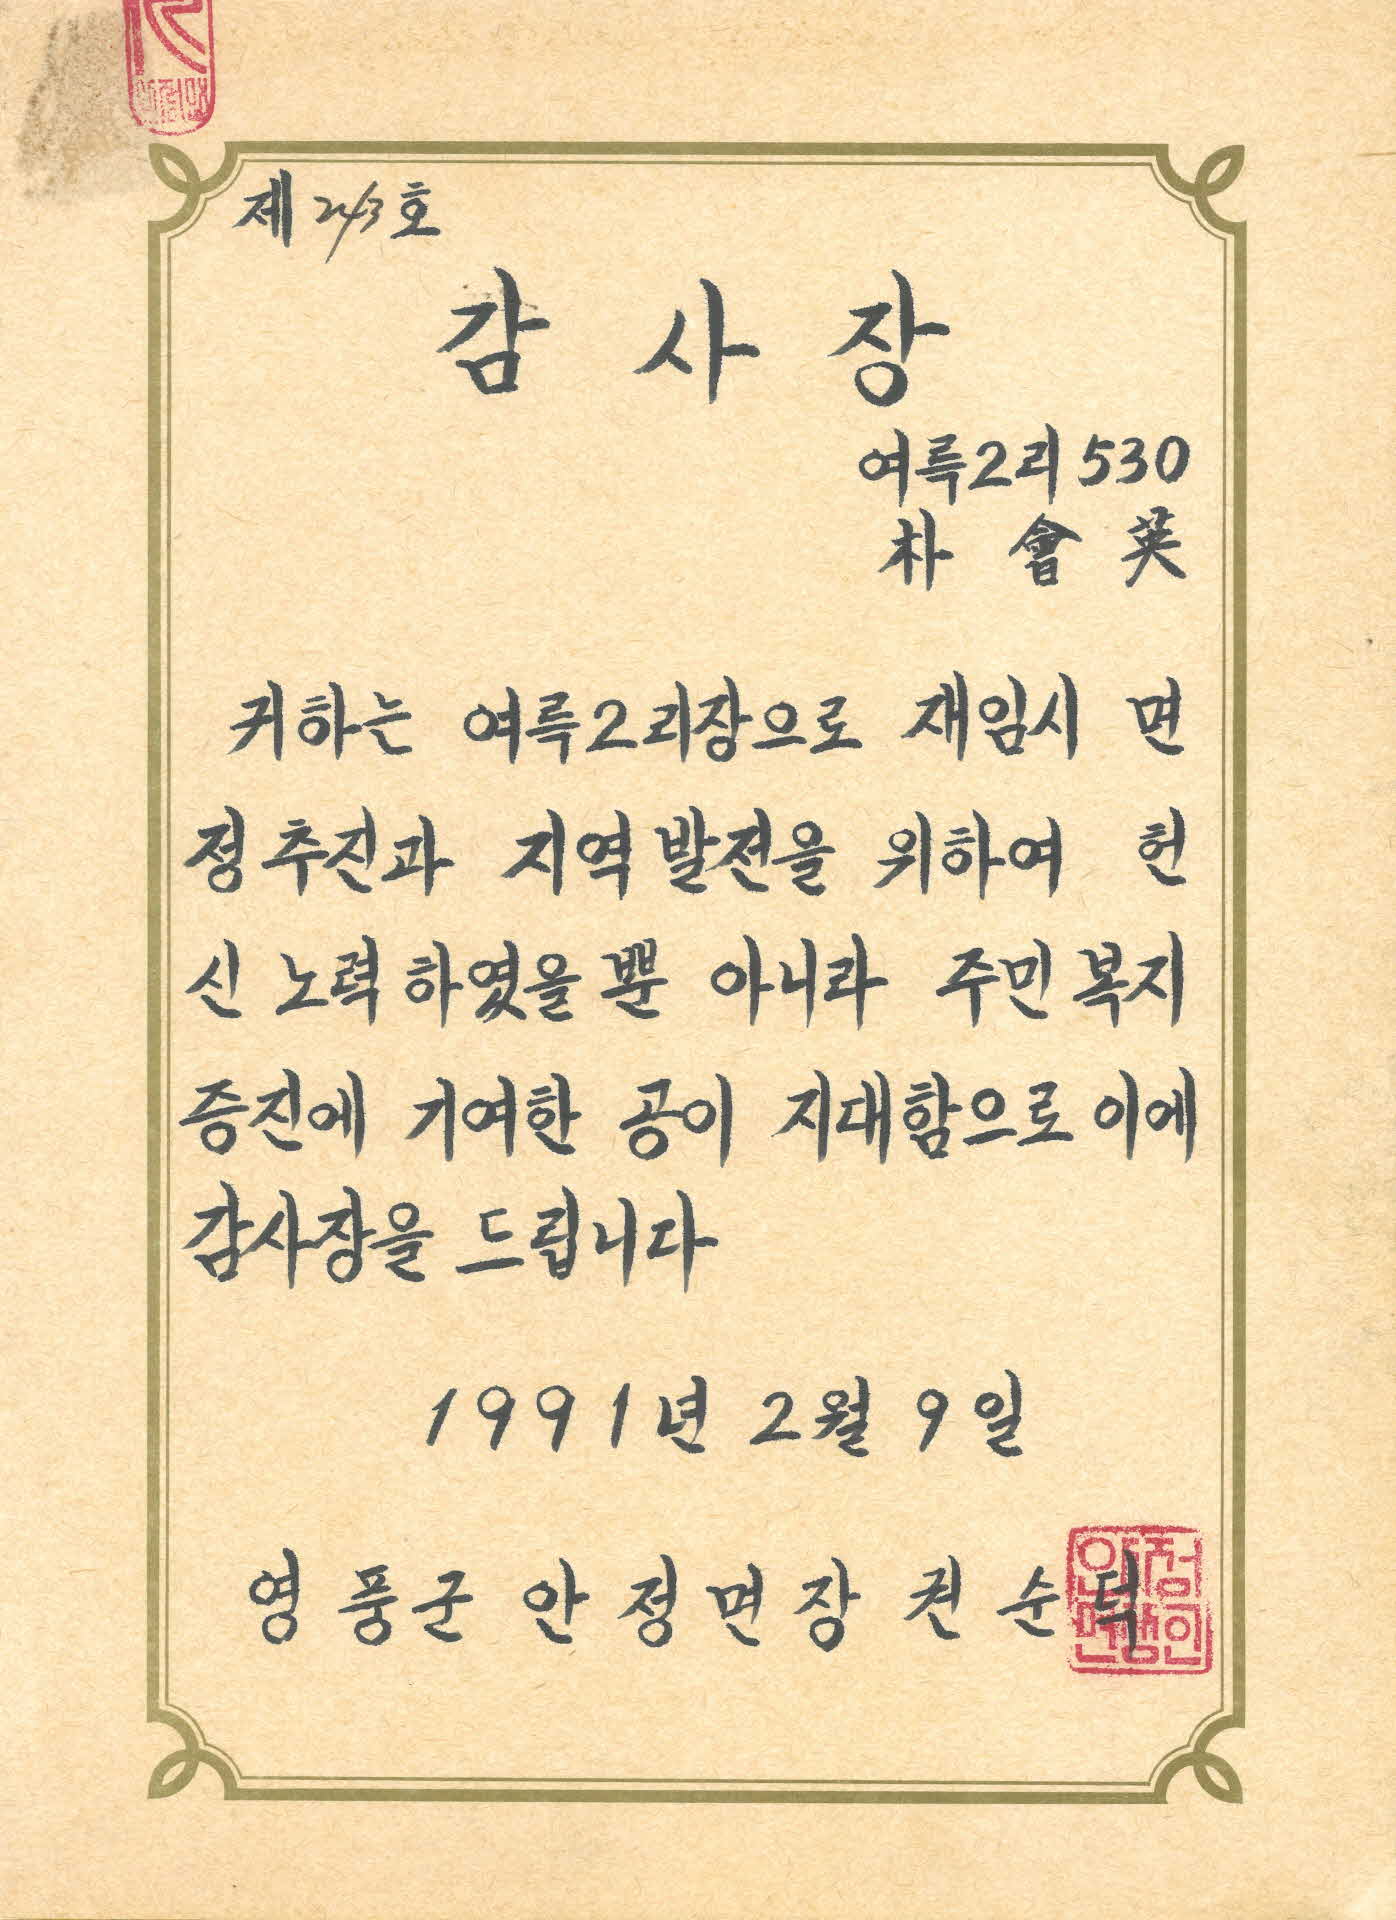 제243호
감사장
여륵2리 530
朴會英
귀하는 여륵2리장으로 재임시 면
정추진과 지역발전을 위하여 헌
신노력하였을뿐 아니라 주민복지
증진에 기여한 공이 지대함으로 이에
감사장을 드립니다
1991년 2월 9일
영풍군안정면장 권순덕
안정
면장인